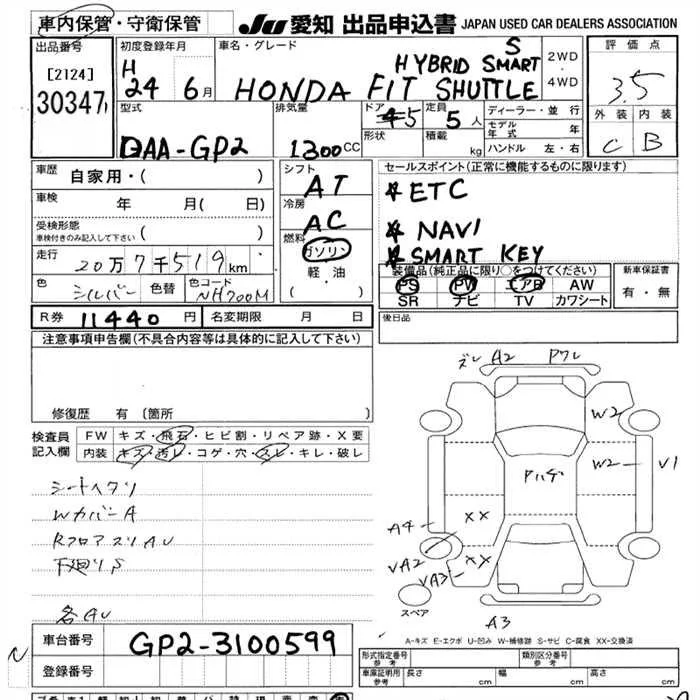 車内保管・守衛保管 JU 愛知 出品申込書 JAPAN USED CAR DEALERS ASSOCIATION
出品番号 初度登録年月 車名・グレード 評価点
[2124] H 24 6月 HONDA FIT SHUTTLE HYBRID SMART S 2WD・4WD 3.5
30347
型式 排気量 ドア 定員 ディーラー・並行 外装 内装
DAA-GP2 1300CC 5 5人 モデル年式 年 C B
形状 積載 kg ハンドル 左・右
車歴 自家用・( ) シフト セールスポイント(正常に機能するものに限ります)
AT ☆ETC
車検 年 月( 日) 冷房
AC ☆NAVI
受検形態
車検付きのみ記入して下さい ( ) 燃料 ☆SMART KEY
走行 20万7千519km ガソリン 装備品(純正品に限り○をつけてください) 新車保証書
軽・油 PS PW エアB AW 有・無
色 シルバー 色替 色コード NH700M ( ) SR ナビ TV カワシート
R券 11440円 名変期限 月 日 後日品
注意事項申告欄(不具合内容等は具体的に記入して下さい)
ズレ A2 Pワレ
修復歴 有 (箇所 )
W2
検査員 FW キズ・飛石・ヒビ割・リペア跡・X要
記入欄 内装 キズ・汚レ・コゲ・穴・スレ・キレ・破レ
W2 V1
Pハゲ
シートヘタリ
WカバーA
XX
A4
RフロアスリAU
VA2 XX
下廻りS
VA3
スペア
各AU
A3
A-キズ E-エクボ U-凹み W-補修跡 S-サビ C-腐食 XX-交換済
車台番号 GP2-3100599
形式指定番号 参考 類別区分番号 参考
登録番号
車庫証明用 参考 長さ cm 幅 cm 高さ cm